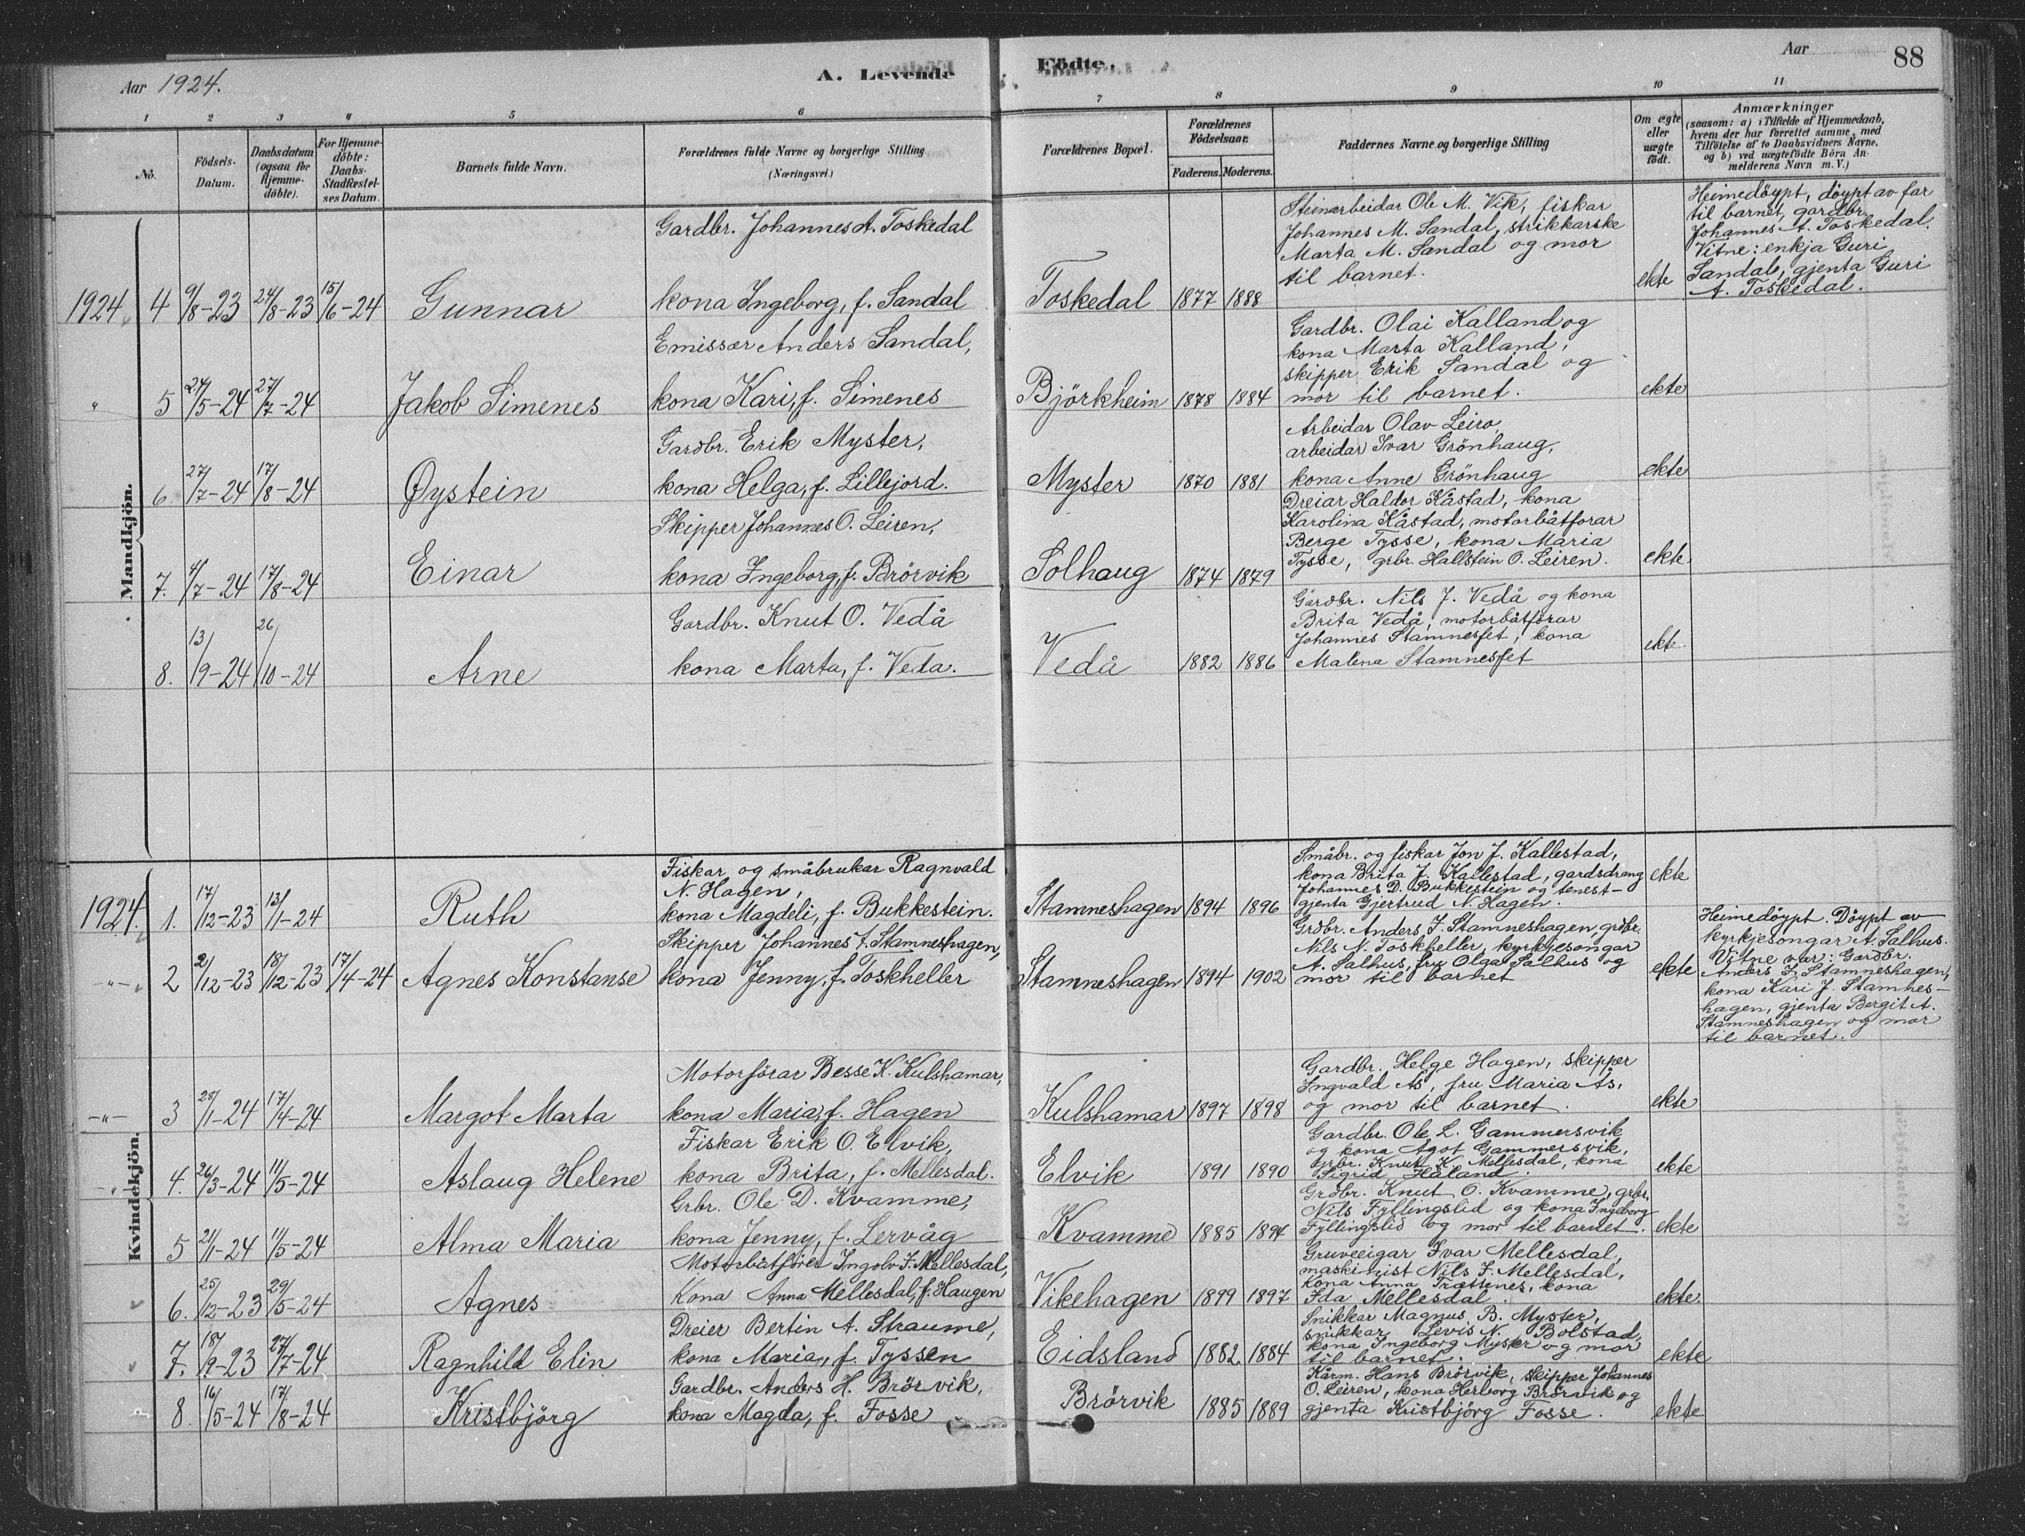 Aar 1924.
A. Levende Födte.
Aar
88
1 2 3 4 5 6 7 8 9 10 11
No.
Födsels-Datum.
Daabsdatum (ogsaa for Hjemmedöbte).
For Hjemmedöbte: Daabs-Stadfæstelses Datum.
Barnets fulde Navn.
Forældrenes fulde Navne og borgerlige Stilling
(Næringsvei.)
Forældrenes Bopæl.
Forældrenes Födselsaar.
Faderens. Moderens.
Faddernes Navne og borgerlige Stilling
Om ægte eller uægte födt.
Anmærkninger
(saasom: a) i Tilfælde af Hjemmedaab, hvem der har forrettet samme, med Tilföielse af to Daabsvidners Navne, og b) ved uægtefödte Börn Anmelderens Navn m. V.)
Mandkjön.
1924 4 9/8-23 24/8-23 15/6-24 Gunnar
Gardbr. Johannes A. Toskedal
kona Ingeborg, f. Sandal
Toskedal 1877 1888
Steinarbeidar Ole M. Vik, fiskar
Johannes M. Sandal, strikkarske
Marta M. Sandal og mor
til barnet.
ekte
Heimedöypt, döypt av far
til barnet, gardbr.
Johannes A. Toskedal.
Vitne: enkja Guri
Sandal, gjenta Guri
A. Toskedal.
" 5 27/5-24 27/7-24 Jakob Simenes
Emissær Anders Sandal,
kona Kari, f. Simenes
Björkheim 1878 1884
Gardbr. Olai Kalland og
kona Marta Kalland,
skipper Erik Sandal og
mor til barnet.
ekte
6 27/7-24 17/8-24 Øystein
Gardbr. Erik Myster,
kona Helga, f. Lillejord.
Myster 1870 1881
Arbeidar Olav Leiro,
arbeidar Ivar Grönhaug,
kona Anne Grönhaug
ekte
7. 4/7-24 17/8-24 Einar
Skipper Johannes O. Leiren,
kona Ingeborg, f. Brörvik
Solhaug 1874 1879
Dreiar Haldor Kåstad, kona
Karolina Kåstad, motorbåtförar
Berge Tysse, kona Maria
Tysse, grbr. Hallstein O. Leiren.
ekte
8. 13/9-24 26/10-24 Arne
Gardbr. Knut O. Vedå
kona Marta, f. Veda.
Vedå 1882 1886
Gardbr. Nils J. Vedå og kona
Brita Vedå, motorbåtförar
Johannes Stamnesfet, kona
Malena Stamnesfet
ekte.
Kvindekjön.
1924. 1. 17/12-23 13/1-24 Ruth
Fiskar og småbrukar Ragnvald
N. Hagen,
kona Magdeli, f. Bukkestein.
Stamneshagen 1894 1896
Småbr. og fiskar Jon J. Kallestad,
kona Brita J. Kallestad, gardsdreng
Johannes D. Bukkestein og tenest-
gjenta Gjertrud N. Hagen.
ekte
-"- 2 2/12-23 18/12-23 17/4-24 Agnes Konstanse
Skipper Johannes J. Stamneshagen,
kona Jenny, f. Toskheller
Stamneshagen 1894 1902
Grdbr. Anders J. Stamneshagen, grdbr.
Nils N. Toskheller, kyrkjesongar
A. Salhus, fru Olga Salhus og
mor til barnet
ekte
Heimedöypt. Döypt av
kyrkjesongar A. Salhus.
Vitne var: Gardbr.
Anders J. Stamneshagen,
kona Kari J. Stamnes-
hagen, gjenta Bergit A.
Stamneshagen og mor
til barnet.
-"- 3 28/1-24 17/4-24 Margot Marta
Motorförar Besse K. Kulshamar,
kona Maria, f. Hagen
Kulshamar 1897 1898
Gardbr. Helge Hagen, skipper
Ingvald Ås, fru Maria Ås,
og mor til barnet.
ekte
-"- 4. 26/3-24 11/5-24 Aslaug Helene
Fiskar Erik O. Elvik,
kona Brita, f. Mellesdal.
Elvik 1891 1890
Gardbr. Ole L. Gammersvik
og kona Agot Gammersvik,
Grbr. Knut K. Mellesdal, kona
Sigrid Håland
ekte
5 21/1-24 11/5-24 Alma Maria
Grbr. Ole D. Kvamme,
kona Jenny, f. Lervåg
Kvamme 1885 1894
Grdbr. Knut O. Kvamme, grbr.
Nils Fyllingslid og kona Ingeborg
Fyllingslid og mor til barnet.
ekte
6. 25/12-23 29/5-24 Agnes
Motorbåtförer Ingolv J. Mellesdal,
Kona Anna Mellesdal, f. Haugen
Vikehagen 1899 1897
Gruveeigar Ivar Mellesdal,
maskinist Nils J. Mellesdal,
Kona Anna Trættenes, kona
Ida Mellesdal.
ekte.
7. 18/9-23 27/7-24 Ragnhild Elin
Dreier Bertin A. Straume,
kona Maria, f. Tyssen
Eidsland 1882 1884
Snikkar Magnus B. Myster,
snikkar Levis N. Bolstad,
kona Ingeborg Myster og mor
til barnet.
ekte
8. 16/5-24 17/8-24 Kristbjörg
Gardbr. Anders H. Brörvik,
kona Magda, f. Fosse
Brörvik 1885 1889
Kårm. Hans Brörvik, skipper Johannes
O. Leiren, kona Herborg Brörvik og
gjenta Kristbjörg Fosse.
ekte